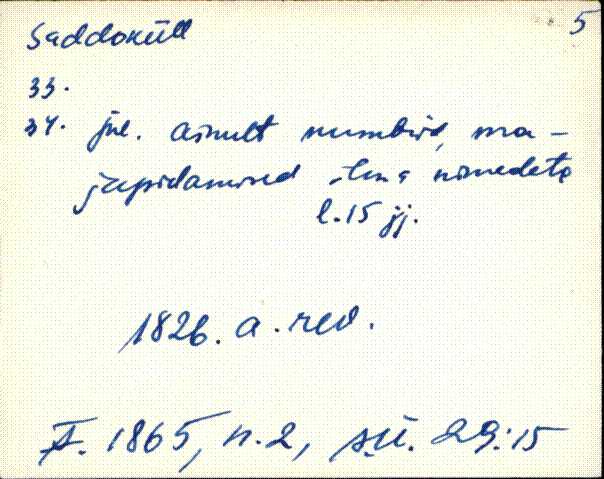 5
Saddoküll
33.
34. jne. Ainult numbrid, ma-
japidamised ilma nimedeta
l. 15 jj.
1826. a. rev.
F. 1865, n. 2, s.ü. 29:15